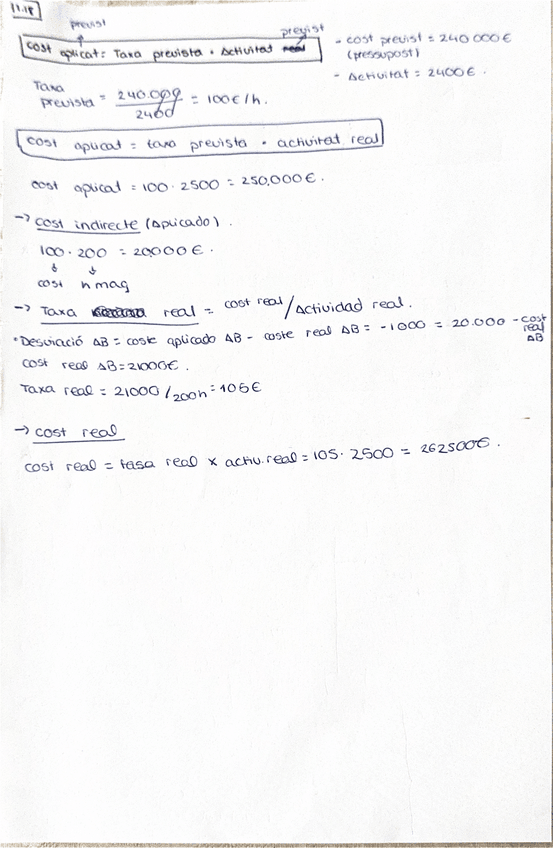 11.18
previst
previst
cost aplicat = Taxa prevista · Activitat real
- cost previst = 240 000 €
(pressupost)
- Activitat = 2400 €.
Taxa prevista = 240.000 / 2400 = 100 €/h.
cost aplicat = taxa prevista · activitat real
cost aplicat = 100 · 2500 = 250.000 €.
→ cost indirecte (Aplicado).
100 · 200 = 20000 €.
↓ ↓
cost h maq
→ Taxa real = cost real / Actividad real.
• Desviació AB = coste aplicado AB - coste real AB = -1000 = 20.000 - cost real AB
cost real AB = 21000 €.
Taxa real = 21000 / 200h = 105 €
→ cost real
cost real = tasa real x activ. real = 105 · 2500 = 262500 €.